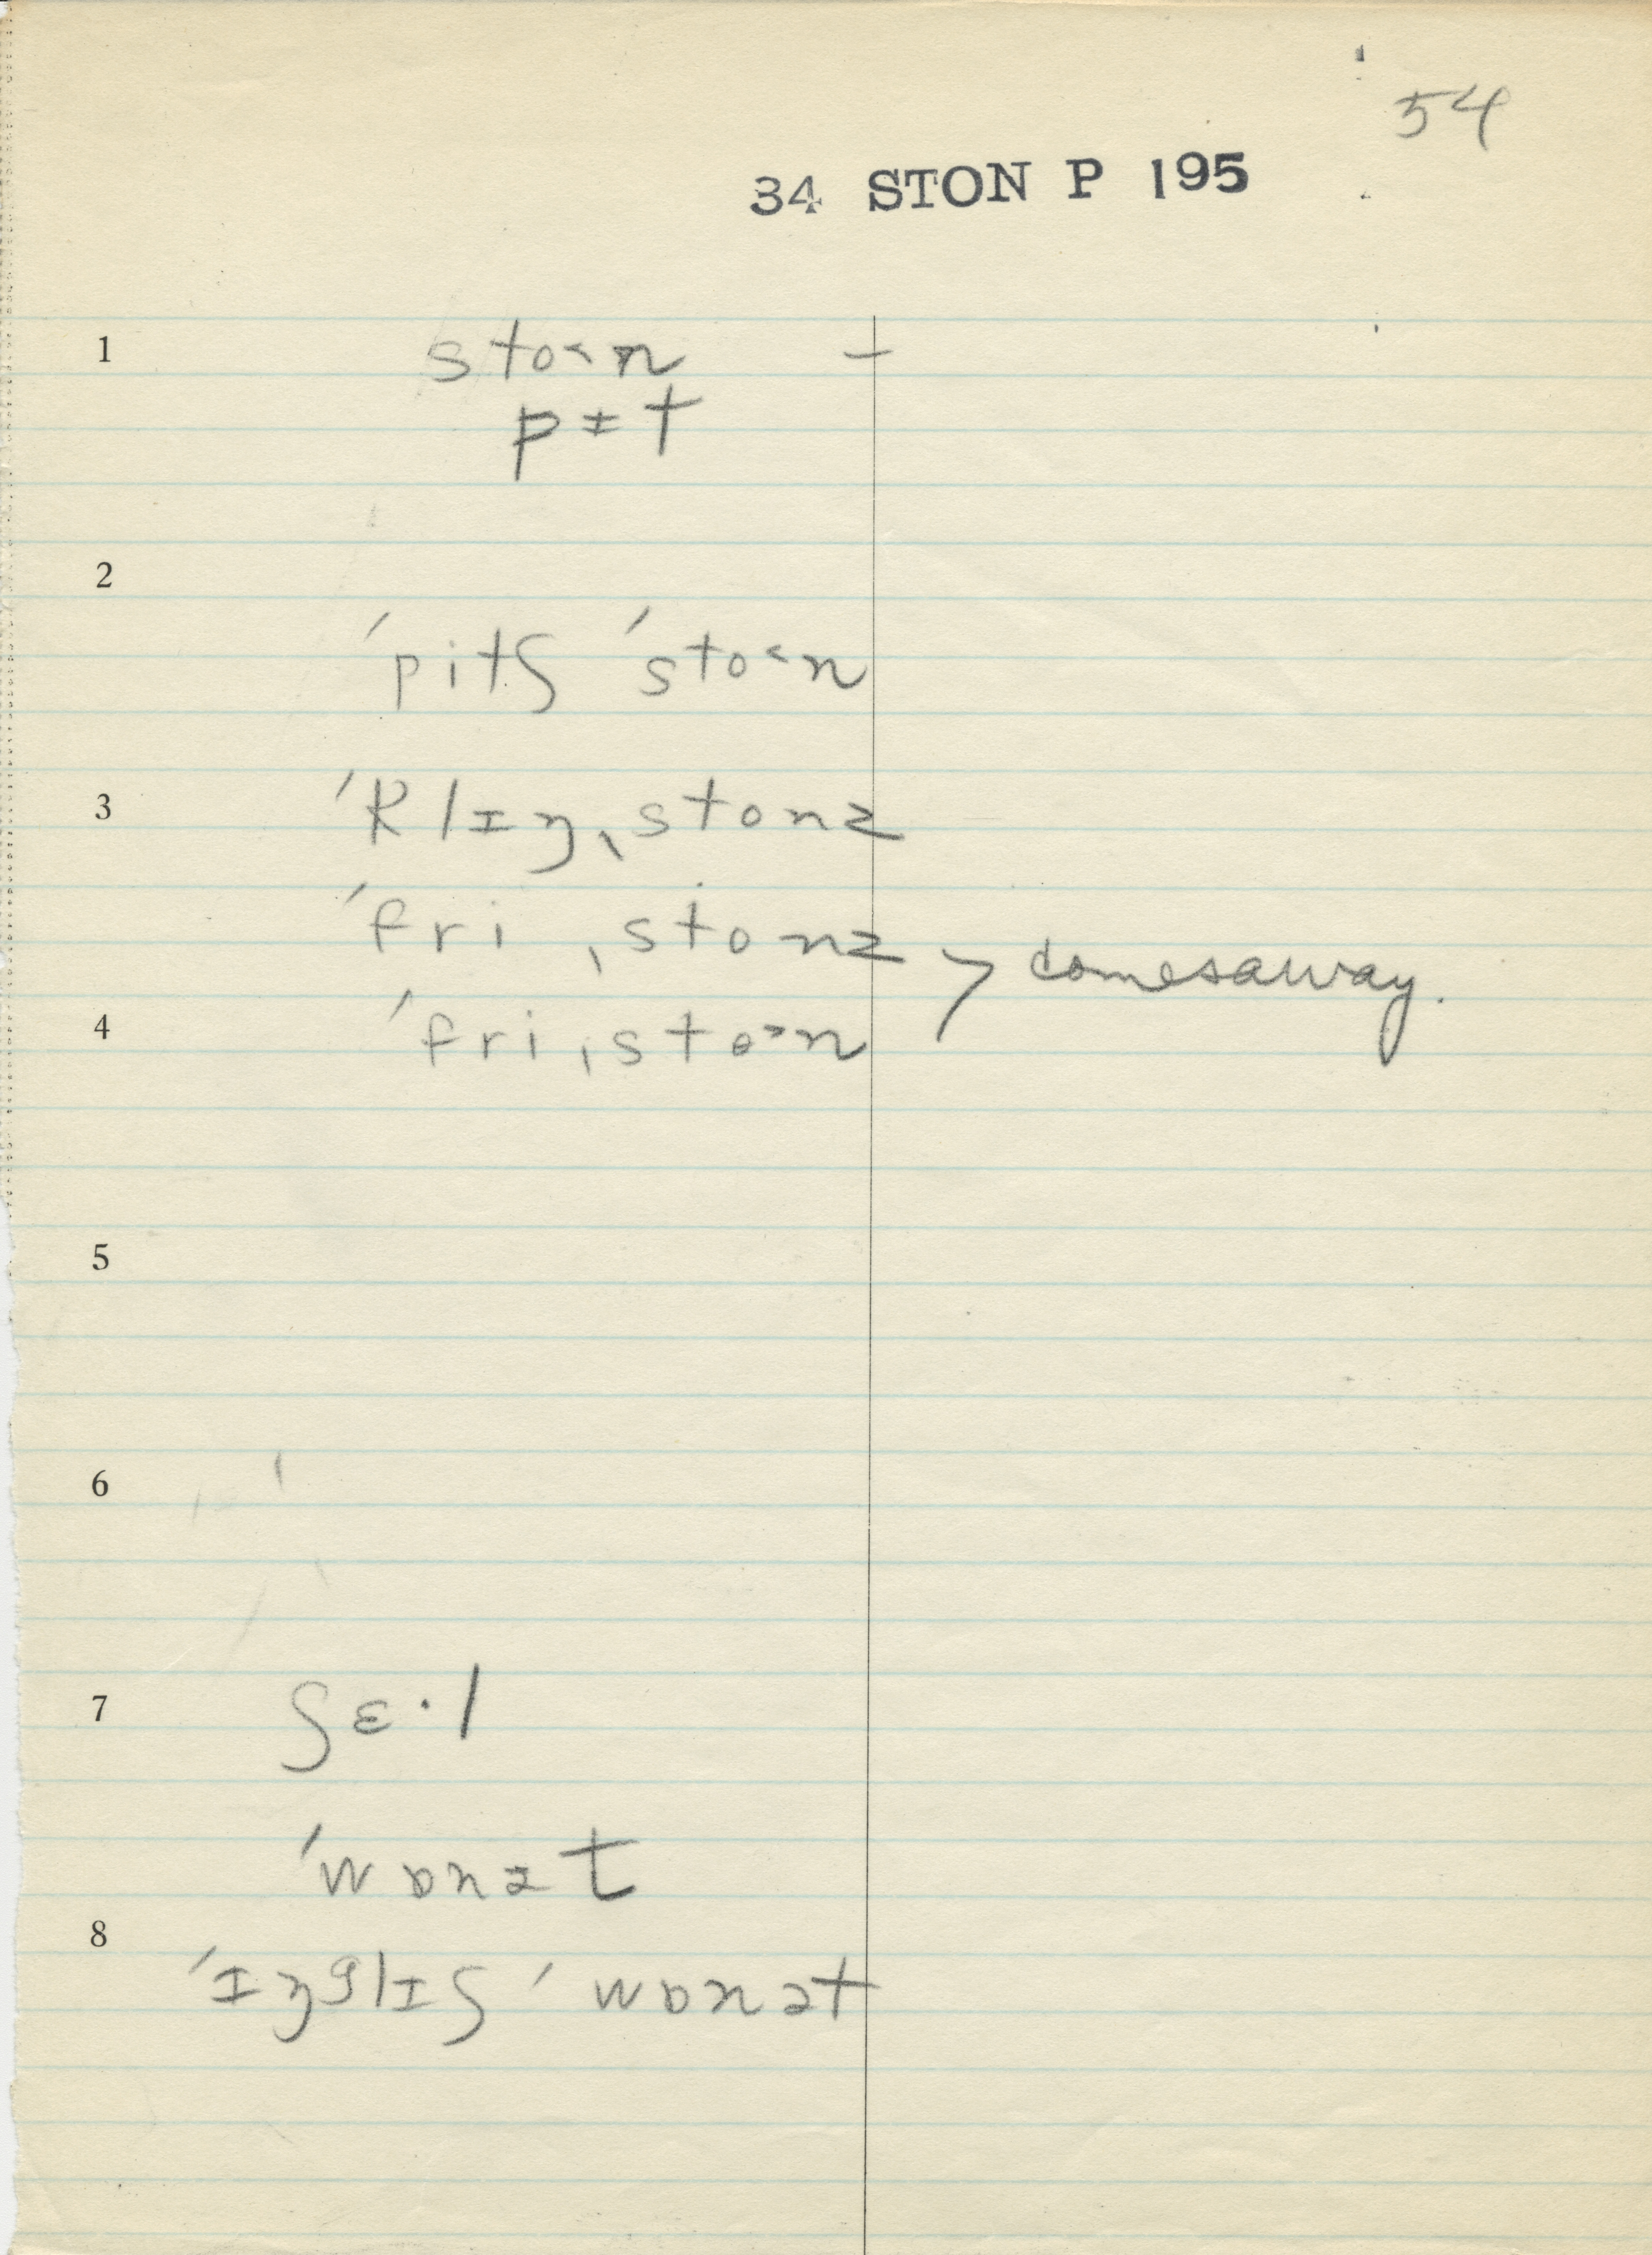 54
34 STON P 195
1 sto˂n –
pɪt
2
ˈpitʃ ˈsto˂n
3 ˈklɪŋˌstonz
ˈfriˌstonz
comesaway.
4 ˈfriˌsto˃n
5
6
7 ʃɛ·l
ˈwɒnət
8
ˈɪŋglɪʃ ˈwɒnət